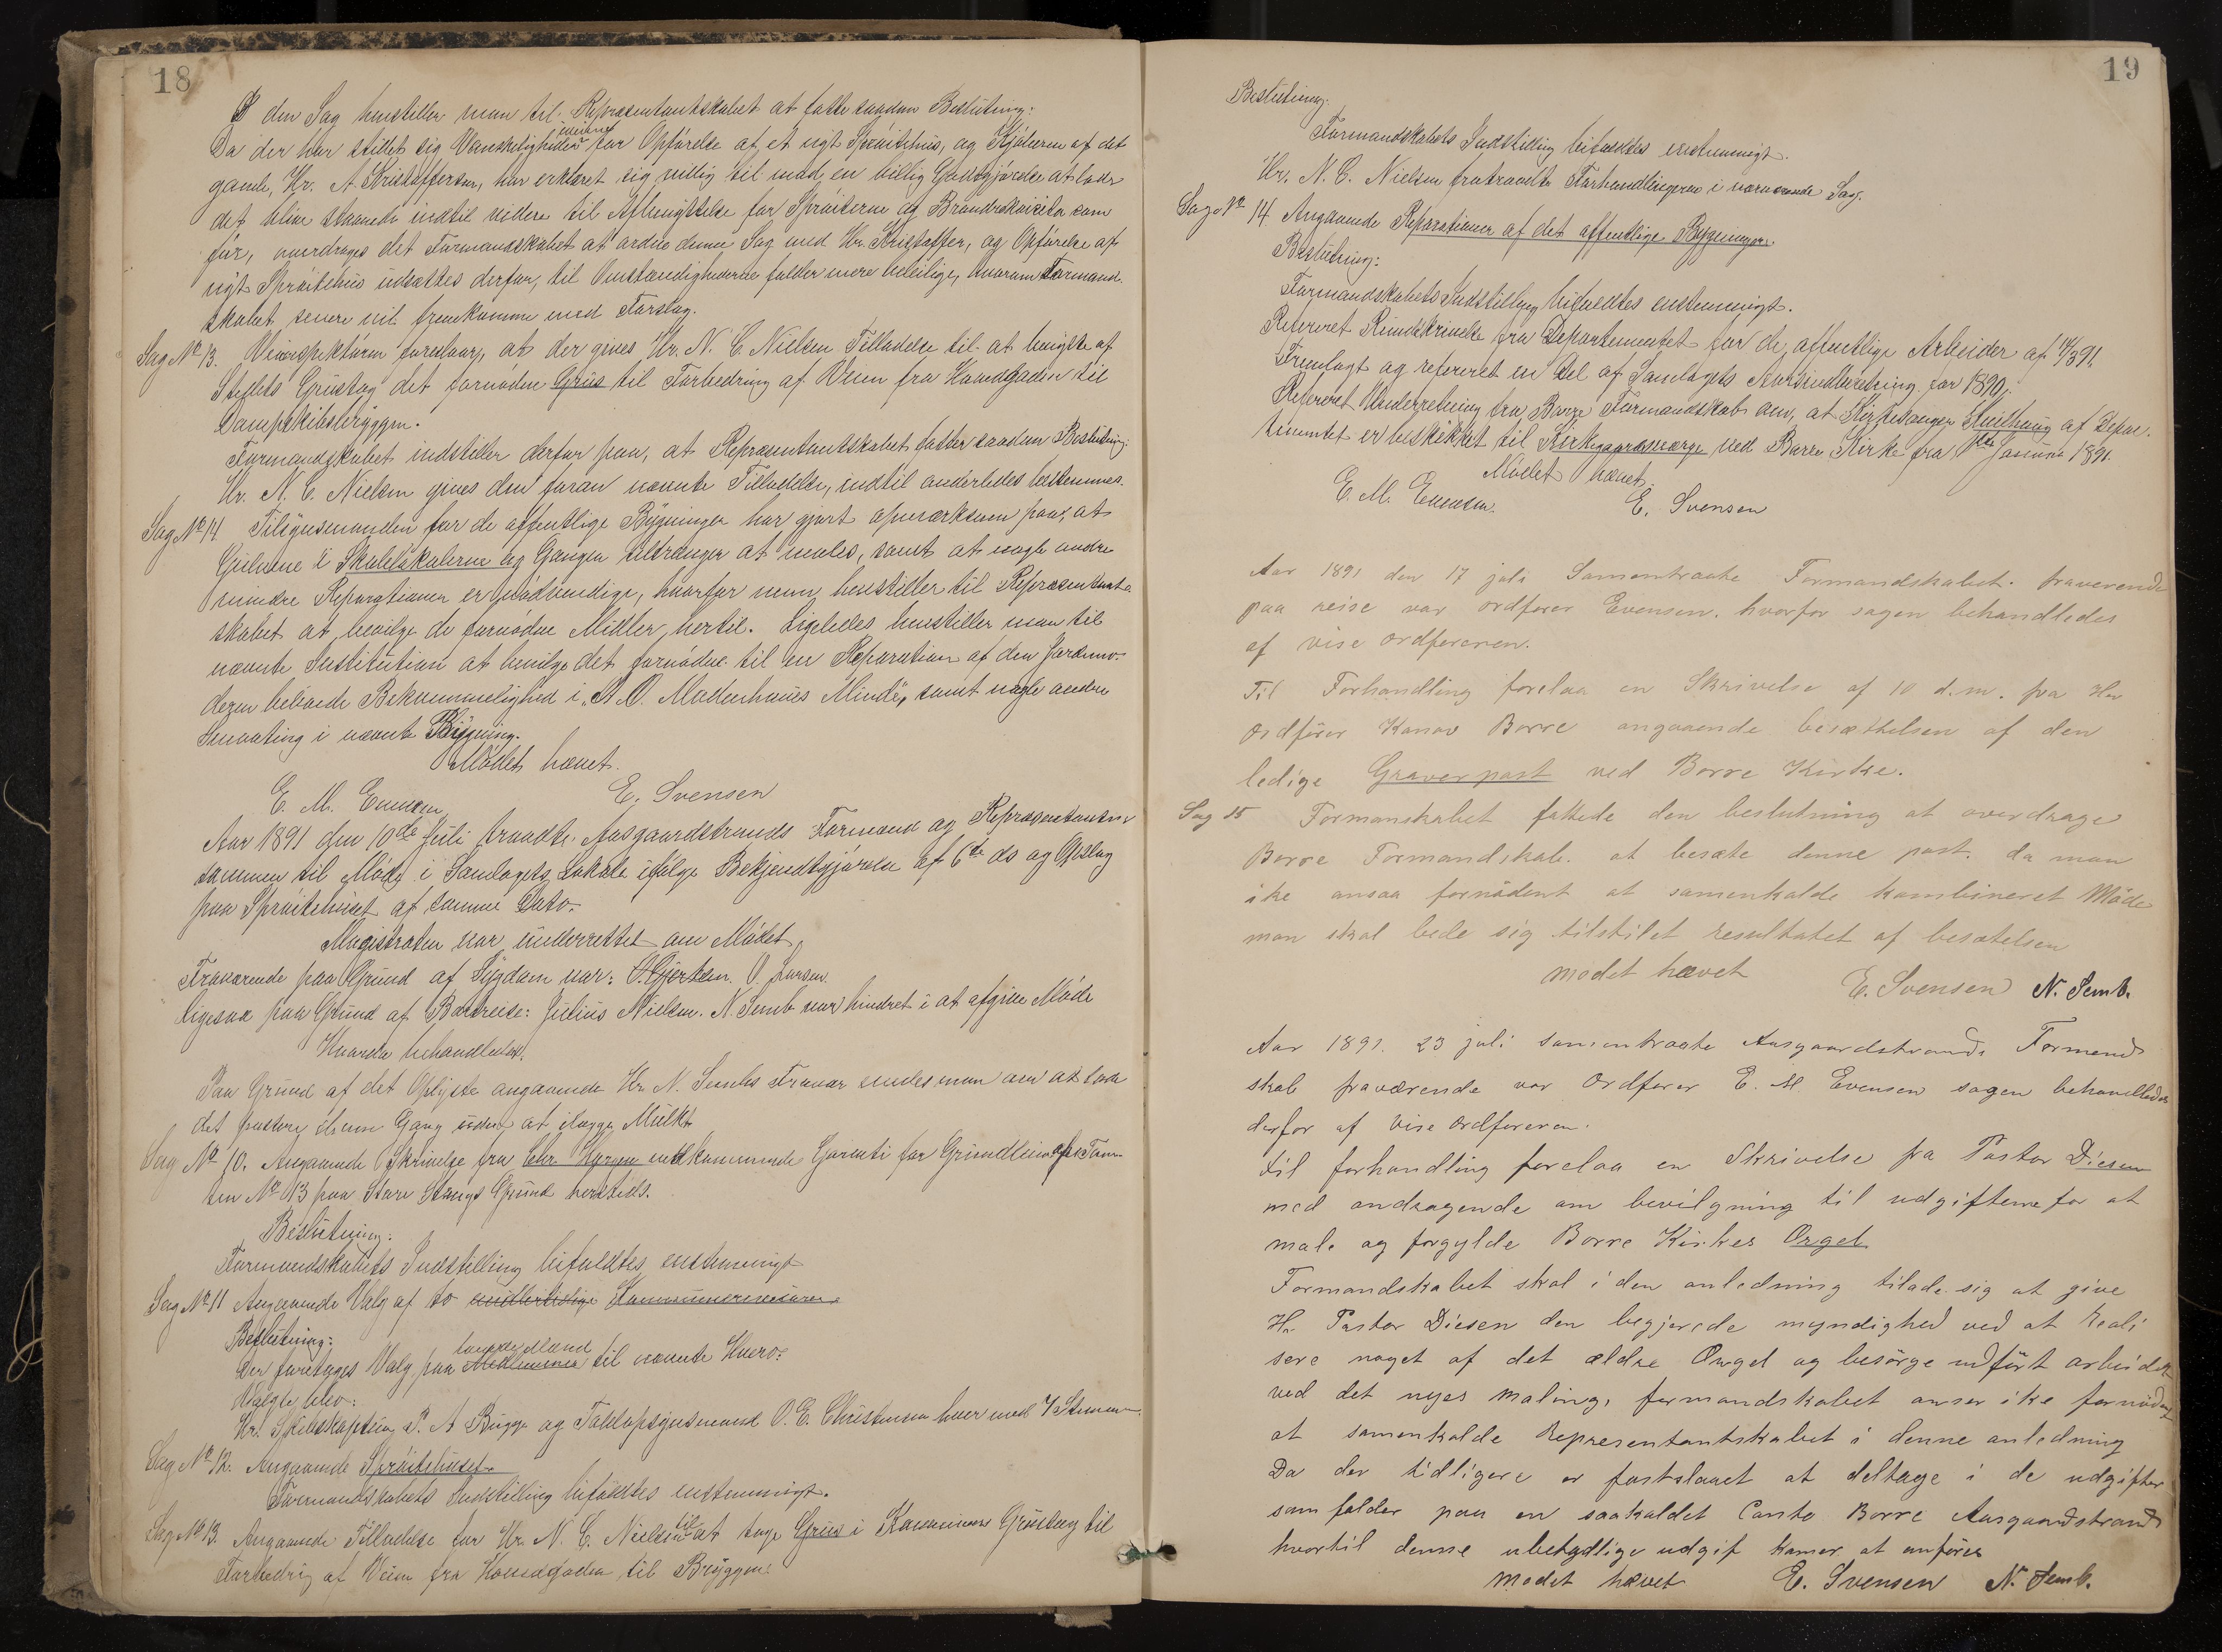 18
I den Sag henstiller man til Repræsentantskabet at fatte saadan Beslutning:
Da der har stillet sig Vanskeligheder imidend for Opførelse af et nyt Sprøitehus, og Kjøberen af det
gamle, Hr. A. Kristoffersen, har erklæret sig villig til mod en billig Godtgjørelse at lade
det blive staaende indtil videre til Afbenyttelse for Sprøiterne og Brandrekvisita som
før, overdrages det Formandskabet at ordne denne Sag med Hr. Kristoffer, og Opførelse af
nyt Sprøitehus udsættes derfor, til Omstændighederne falder mere beleilige, hvorom Formand-
skabet senere vil fremkomme med Forslag.
Sag No 13. Veiinspektøren foreslaar, at der gives Hr. N. C. Nielsen Tilladelse til at benytte af
Stedets Grustag det fornødne Grus til Forbedring af Veien fra Havnegaden til
Dampskibsbryggen.
Formandskabet indstiller derfor paa, at Repræsentantskabet fatter saadan Beslutning:
Hr. N. C. Nielsen gives den foran nævnte Tilladelse, indtil anderledes bestemmes.
Sag No 14 Tilsynsmanden for de offentlige Bygninger har gjort opmærksom paa, at
Gulvene i Skolelokalerne og Gangen tiltrænger at males, samt at nogle andre
mindre Reparationer er nødvendige, hvorfor man henstiller til Repræsentant-
skabet at bevilge de fornødne Midler hertil. Ligeledes henstiller man til
nævnte Institution at bevilge det fornødne til en Reparation af den Jordmo-
deren beboede Bekvemmelighed i „A. O. Madenhaus Minde“, samt nogle andre
Smaating i nævnte Bygning.
Mødet hævet.
E. M. Evensen E. Svensen
Aar 1891 den 10de Juli traadte Aasgaardstrands Formænd og Repræsentanter
sammen til Møde i Samlagets Lokale ifølge Bekjendtgjørelse af 6te ds og Opslag
paa Sprøitehuset af samme Dato.
Magistraten var underrettet om Mødet.
Fraværende paa Grund af Sygdom var: O. Gjertsen. O. Larsen.
ligesaa paa Grund af Bortreise: Julius Nielsen. N. Semb var hindret i at afgive Møde
Hvorda behandledes.
Paa Grund af det Oplyste angaaende Hr. N. Sembs Fravær enedes man om at lade
det passere denne Gang uden at ilægge Mulkt
Sag No 10. Angaaende Skrivelse fra Chr. Hyrgen vedkommende Garanti for Grundleien af Tom-
ten No 13 paa Store Stangs Grund herteds.
Beslutning:
Formandskabets Indstilling bifaldtes enstemmigt
Sag No 11 Angaaende Valg af to midlertidige Kommunerevisorer.
Beslutning:
Der foretages Valg paa Medlemmer til nævnte Hverv:
Valgte blev:
Hr. Skibskaptein P. A Bugge og Toldopsynsmand O. E. Christensen hver med 7 Stemmer.
Sag No 12. Angaaende Sprøitehuset.
Formandskabets Indstilling bifaldtes enstemmigt.
Sag No 13. Angaaende Tilladelse for Hr. N. C. Nielsen til at tage Grus i Kommunens Grustag til
Forbedrig af Veien fra Havnegaden til Bryggen.
19
Beslutning:
Formandskabets Indstilling bifaldtes enstemmigt.
Hr. N. C. Nielsen fratraadte Forhandlingerne i nærværende Sag.
Sag No 14. Angaaende Reparationer af det offentlige Bygninger.
Beslutning:
Formandskabets Indstilling bifaldtes enstemmigt.
Refereret Rundskrivelse fra Departementet for de offentlige Arbeider af 14/3 91.
Fremlagt og refereret en Del af Samlagets Aarsindberetning for 1890.
Refereret Underretning fra Borre Formandskab om, at Kirkesanger Knudhaug af Depar-
tementet er beskikket til Kirkegaardsværge ved Borre Kirke fra 1ste Januar 1891.
Mødet hævet.
E. M. Evensen. E. Svensen
Aar 1891 den 17 juli Samentraate Formandskabet. fraverende
paa reise var ordfører Evensen. hvorfor sagen behandledes
af vise ordføreren.
Til Forhandling forelaa en Skrivelse af 10 d. m. fra Her
ordfører Kanav Borre angaaende besættelsen af den
ledige Graverpost ved Borre Kirke.
Sag 15 Formanskabet fattede den beslutning at overdrage
Borre Formandskab. at besæte denne post. da man
ike ansaa fornødent at samenkalde kombineret Møde
man skal bede sig tilstilet resultatet af besætelsen
mødet hævet E. Svensen N. Semb.
Aar 1891. 23 juli samentraate Aasgaardstrands Formend
skab fraværende var Ordfører E. M Evensen sagen behandledes
derfor af vise ordføreren.
til forhandling forelaa en Skrivelse fra Pastor Diesen
med andragende om bevilgning til udgifterne for at
male og forgylde Borre Kirkes Orgel
Formandskabet skal i den anledning tilade sig at give
Hr. Pastor Diesen den begjærede myndighed ved at reali
sere noget af det ældre Orgel og besørge udført arbeidet
ved det nyes maling, formandskabet anser ike fornødent
at samenkalde Representantskabet i denne anledning
Da der tidligere er fastslaaet at deltage i de udgifter
som falder paa en saakaldet Conto Borre Aasgaardstrand
hvortil denne ubetydlige udgift komer at anføres
mødet hævet E. Svensen N. Semb.